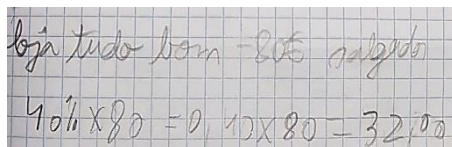 loja tudo bom - 80 salgados
40% x 80 = 0,40 x 80 = 32,00